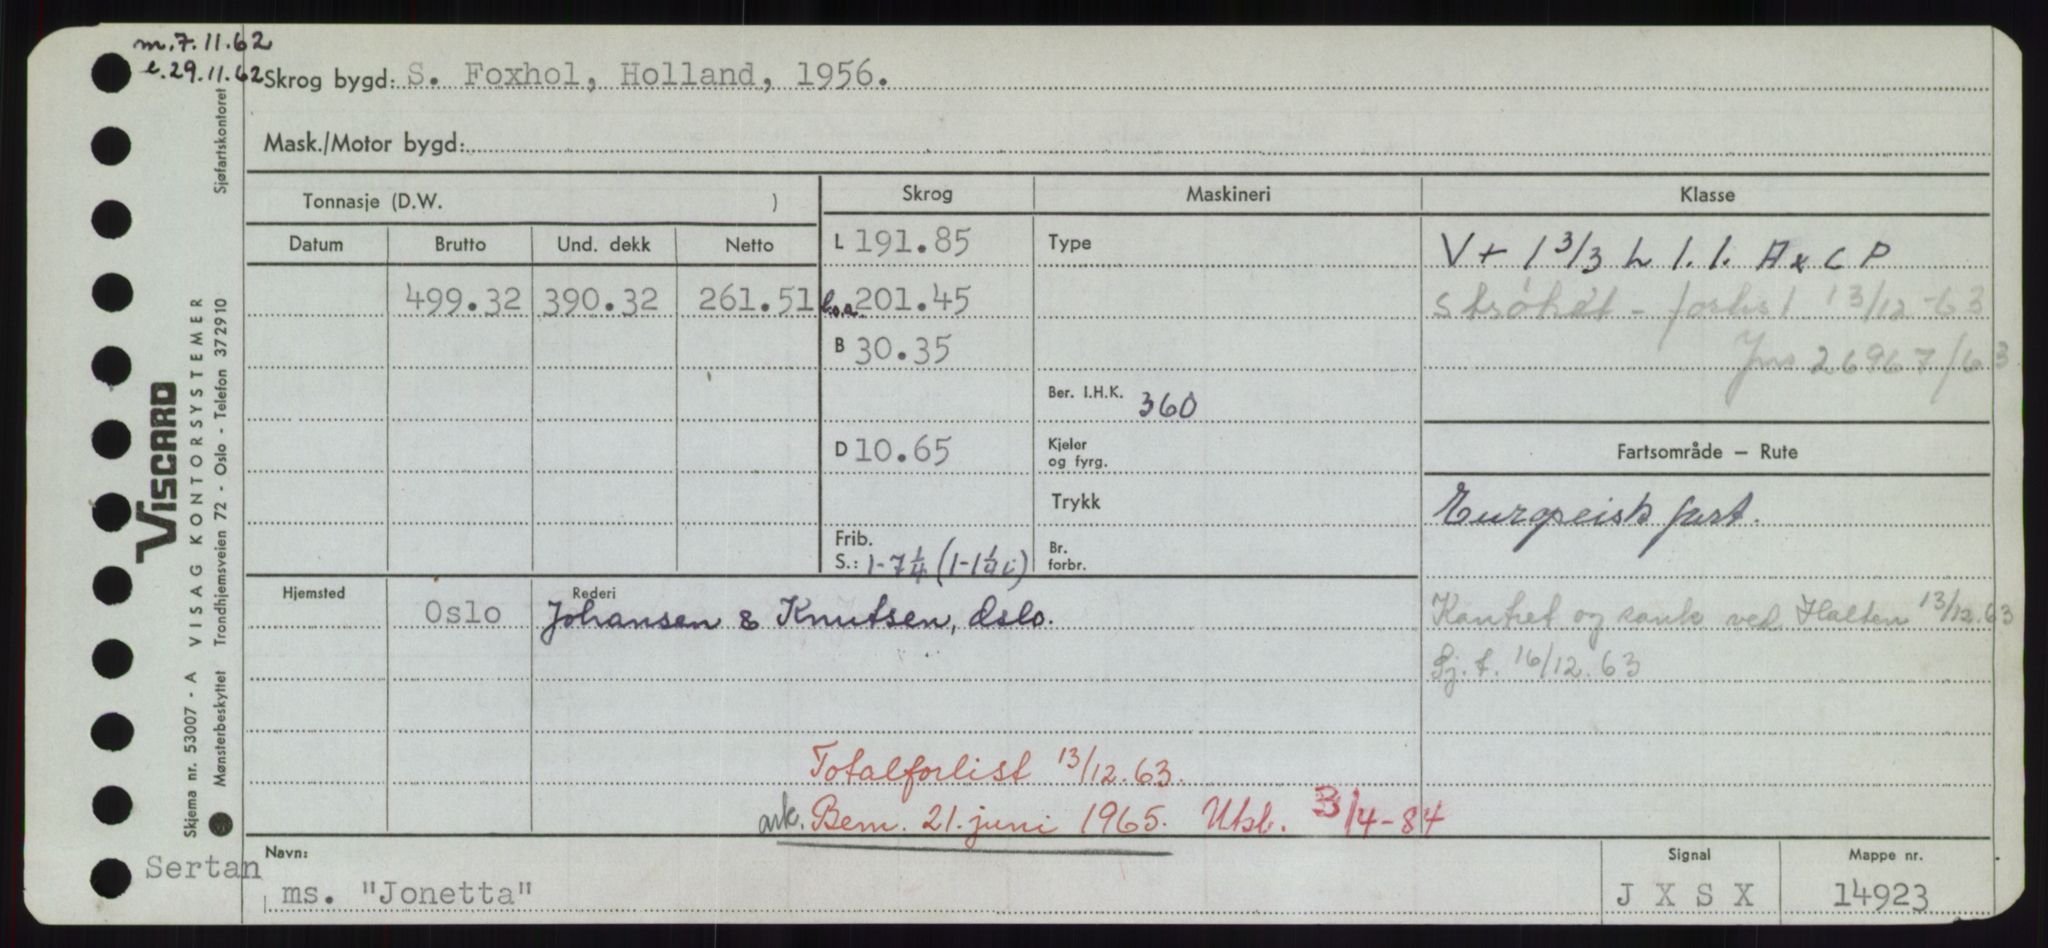 m.7.11.62
e.29.11.62
Skrog bygd: S. Foxhol, Holland, 1956.
Mask./Motor bygd:
Tonnasje (D.W. )
Skrog
Maskineri
Klasse
Datum
Brutto
Und. dekk
Netto
L 191.85
Type
V + 1 3/3 L 1.1. A x C P
499.32 390.32 261.51
l.o.a. 201.45
13/12-63
B 30.35
26967/63
Ber. I.H.K. 360
D 10.65
Kjeler og fyrg.
Fartsområde – Rute
Trykk
Europeisk fart.
Frib.
S.: 1-7 1/4 (1-1 1/4 i)
Br. forbr.
Hjemsted
Oslo
Rederi
Johansen & Knutsen, Oslo.
Kantret og sank ved Halten 13/12.63
Sj.t. 16/12.63
Totalforlist 13/12.63.
ark. Bem. 21. juni 1965. Utsl. 3/4-84
Navn:
Sertan
ms. "Jonetta"
Signal
J X S X
Mappe nr.
14923
VISCARD
VISAG KONTORSYSTEMER
Skjema nr. 53007 - A
Mønsterbeskyttet Trondhjemsveien 72 - Oslo - Telefon 372910
Sjøfartskontoret